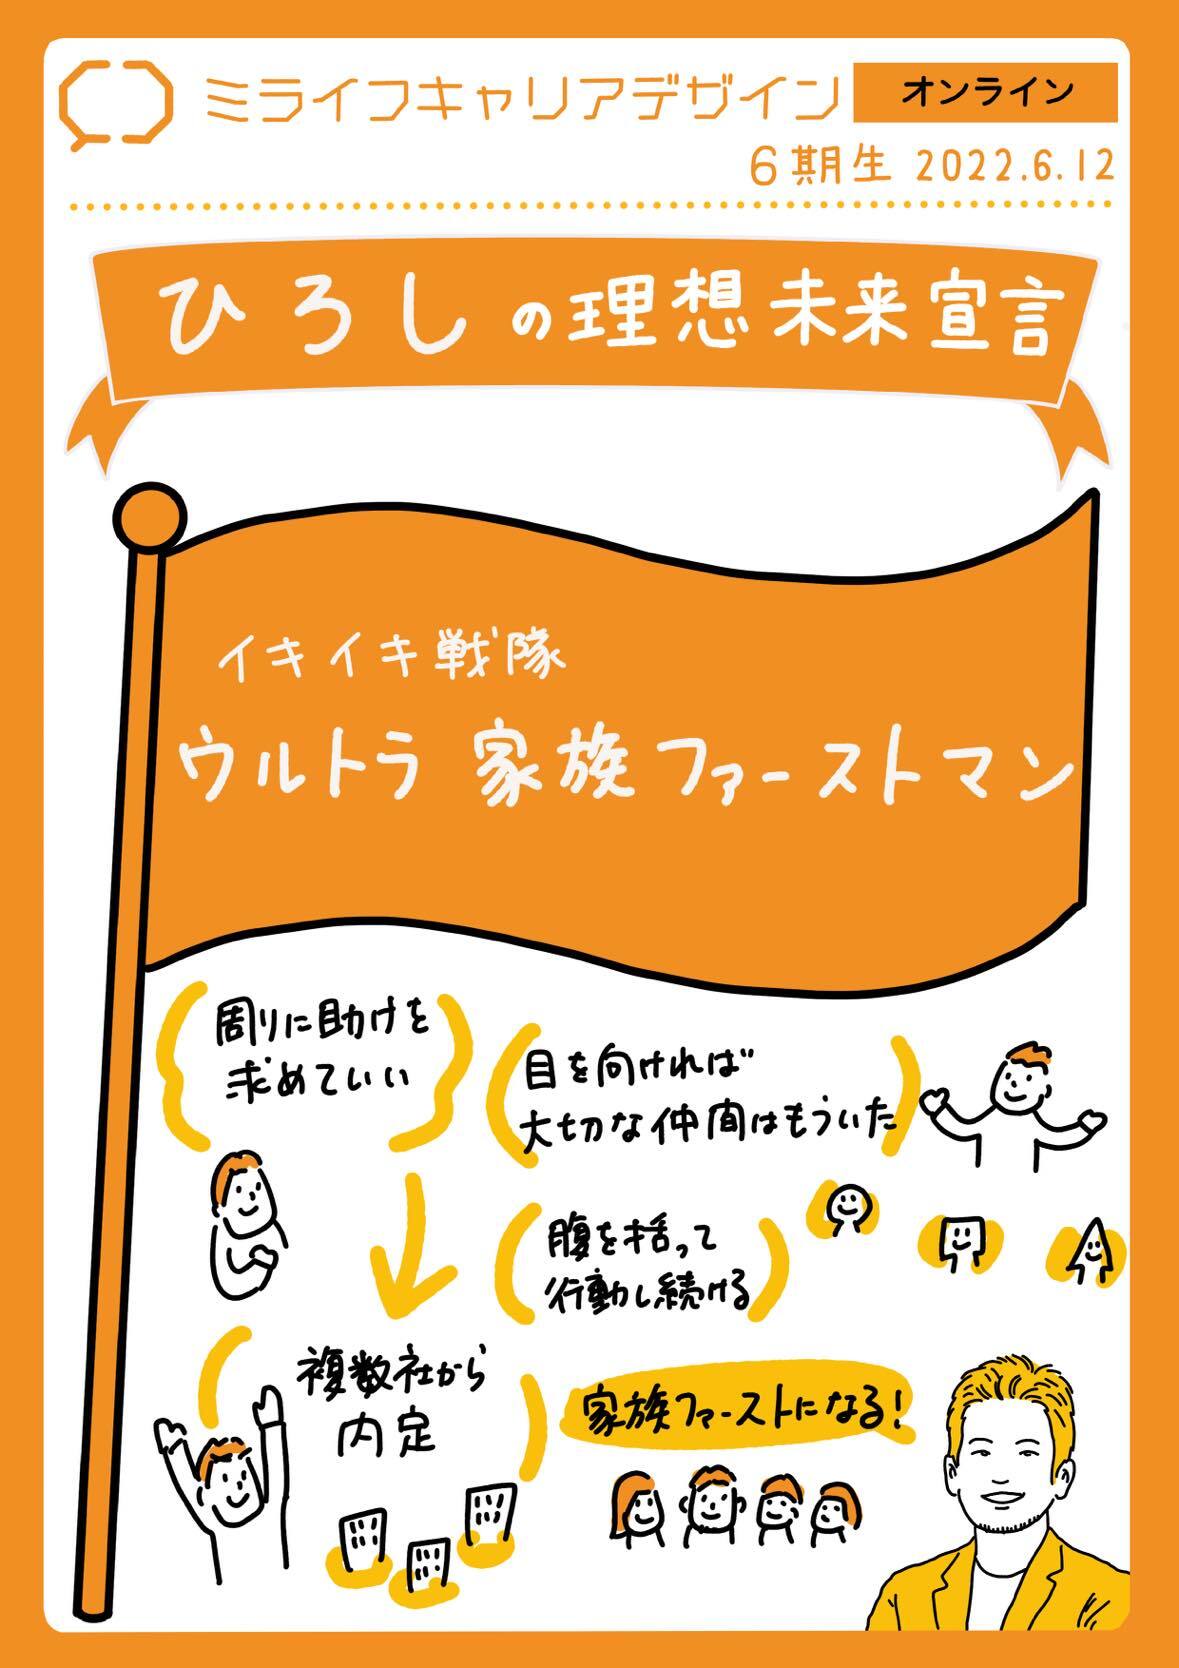 ミライフキャリアデザイン オンライン
6期生 2022.6.12
ひろしの理想未来宣言
イキイキ戦隊
ウルトラ 家族ファーストマン
周りに助けを
求めていい
目を向ければ
大切な仲間はもういた
腹を括って
行動し続ける
複数社から
内定
家族ファーストになる!